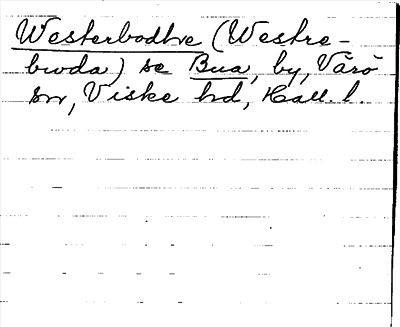 Westerbodhve (Westre-
bwda) se Bua, by, Värö
sn, Viske hd, Hall. l.